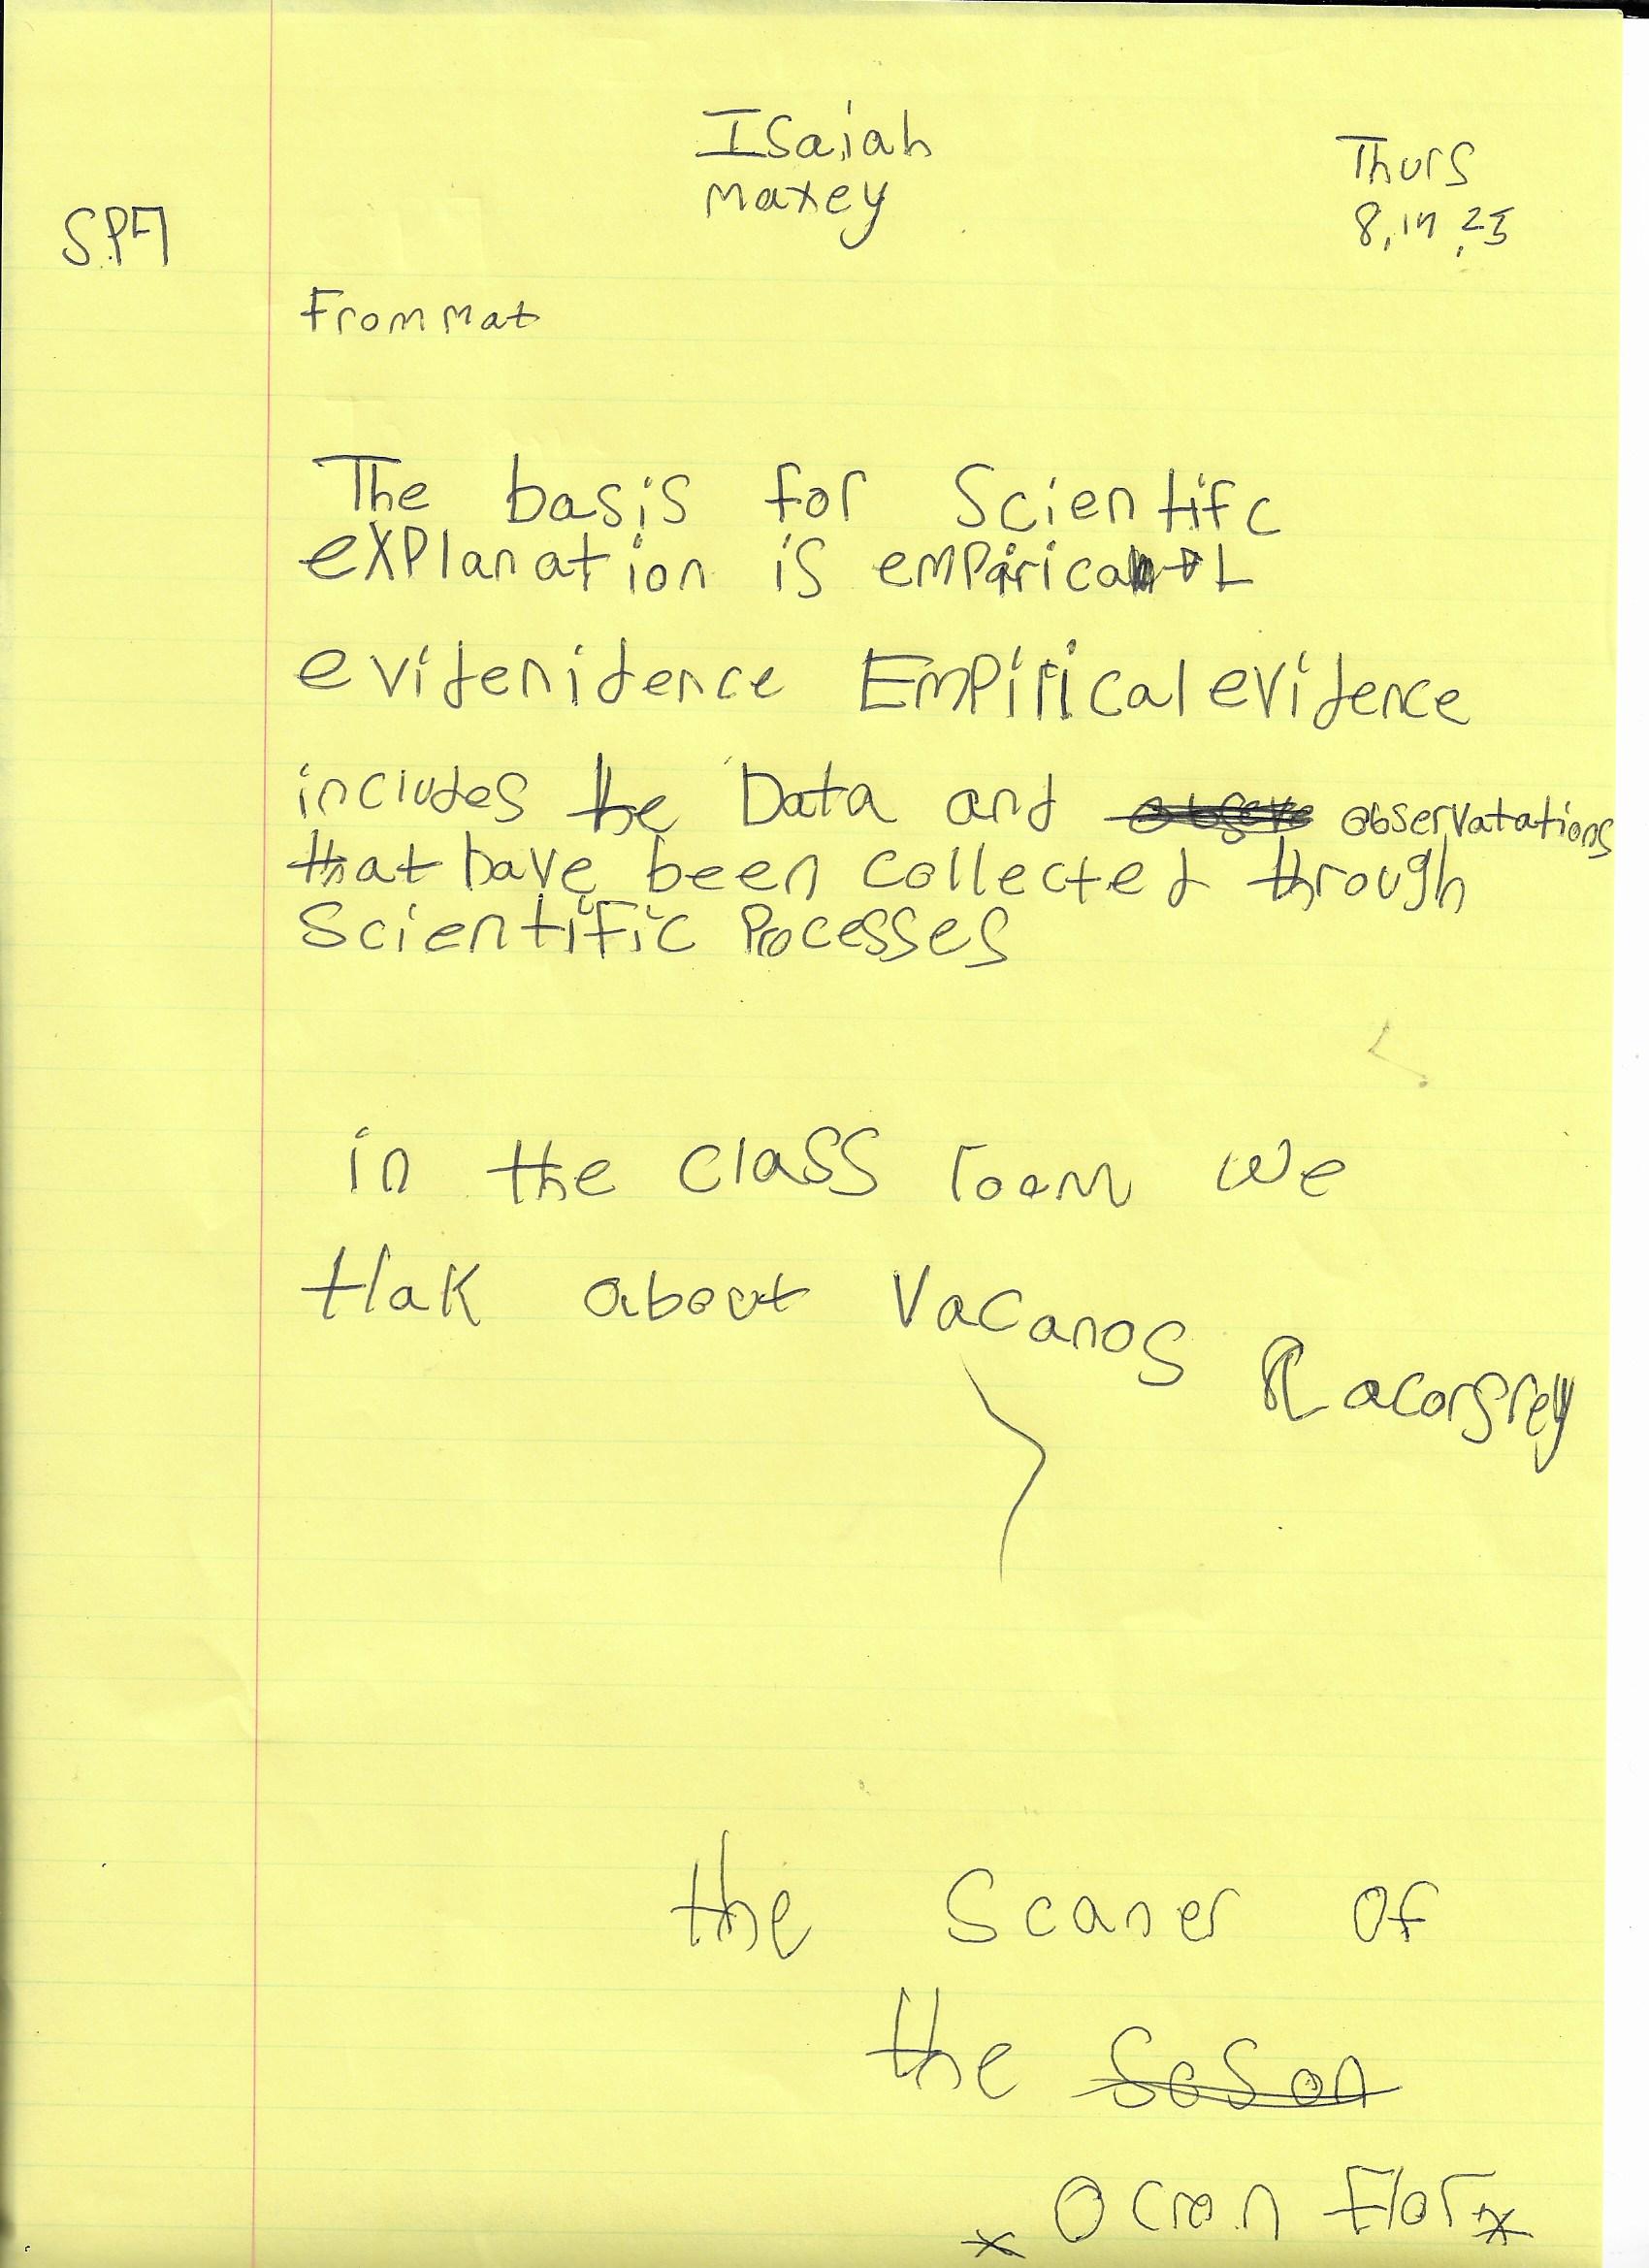 Isaiah
Maxey
Thurs
8,17,23
From mat
The basis for Scientifc
explanation is empirical
evidenidence Empirical evidence
includes the Data and observatations
that have been collected through
Scientific Processes
in the class room we
tlak about Vacanos
the Scaner of
the Seson
Ocran Flor